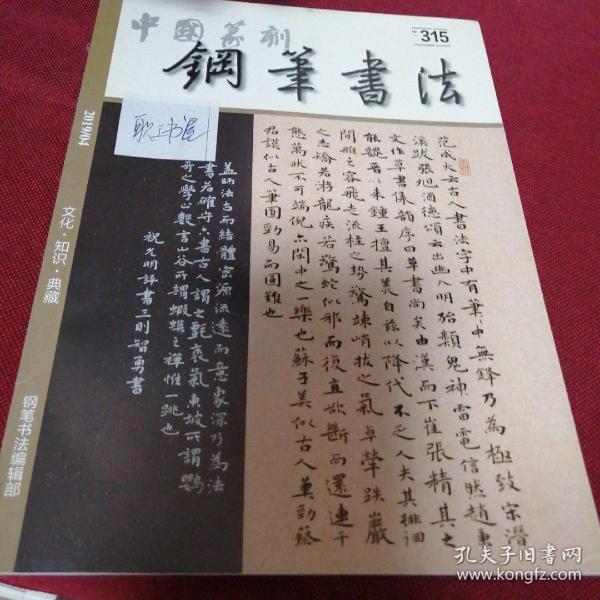 中國篆刻
315
鋼筆書法
耿氏书屋
2019/04
文化·知识·典藏
钢笔书法编辑部
范成大云古人書法字中有筆筆中無鋒乃為極致宋潛
溪跋張旭酒德頌云出幽入明殆類鬼神雷電信然趙東
文作草書集韻序曰草書尚矣由漢而下崔張精其
能魏晉以来鍾王擅其美自茲以降代不乏人夫其徘徊
閑雅之容飛走流柱之勢驚竦峭拔之氣卓犖跌
之志矯若游龍疾若驚蛇似邪而復直欲斷而還連千
態萬狀不可端倪亦閑中之一樂也蘇子美似古人
君謨似古人筆圓勁易而圓難也
蓋師法古而結體密源流遠而意象深乃為法
書若確守六書古人謂之氣東坡所謂鸚
哥之學止數言山谷所謂蝦蟆之禪惟一跳也
祝允明評書三則智勇書
孔夫子旧书网
www.kongfz.com